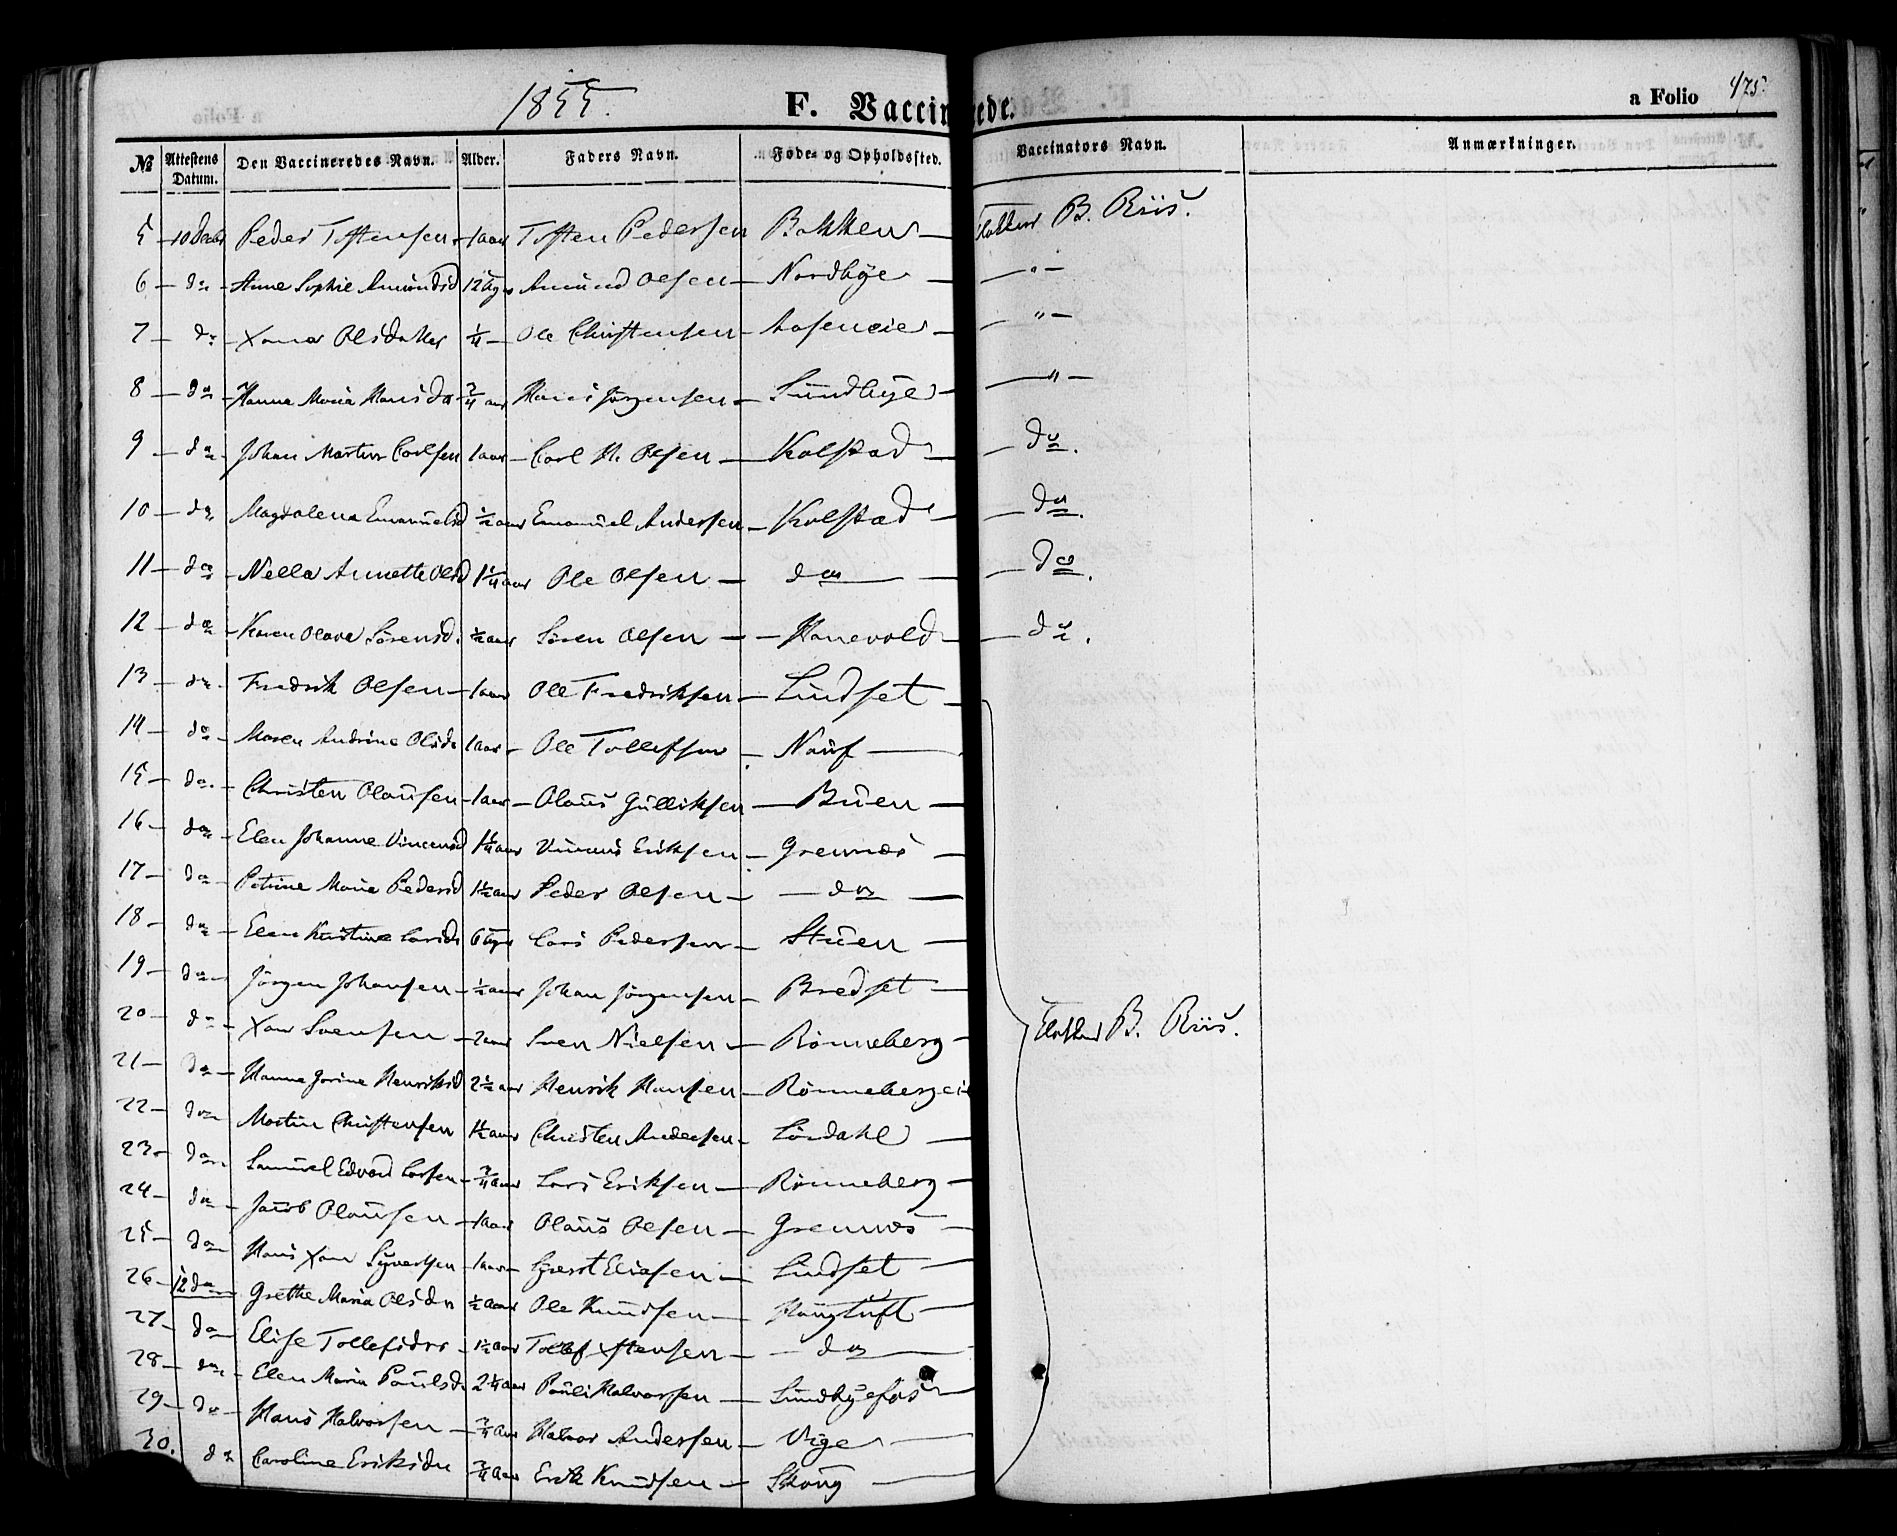 1855.
F. Vaccinerede.
a Folio 475.
№ Attestens Datum. Den Vaccineredes Navn. Alder. Faders Navn. Føde- og Opholdssted. Vaccinators Navn. Anmærkninger.
5 10 Decbr Peder Tostensen 1 aar Tosten Pedersen Bakken Klokker B. Riis.
6 do Anne Sophie Amundsd 12 Ugr Amund Olsen Nordbye "
7 do Xana Olsdatter 1/4 Ole Christensen Aaseneie "
8 do Hanna Maria Hansda 3/4 aar Hans Jørgensen Sundbye "
9 do Johan Martin Carlsen 1 aar Carl H. Olsen Kolstad do.
10 do Magdalena Emanuelsd 1/2 aar Emanuel Andersen Kolstad do.
11 do Nella Annette Olsd 1 1/4 aar Ole Olsen do do.
12 do Karen Olava Sørensd. 1/2 aar Søren Olsen Hanevold do.
13 do Fredrik Olsen 1 aar Ole Fredriksen Lindset
14 do Maren Andrine Olsdr 1 aar Ole Tollefsen Nauf
15 do. Christen Olausen 1 aar Olaus Gulliksen Buen
16 do Elen Johanne Vincensd 1 1/4 aar Vincens Eriksen Grennes
17 do Petrine Maria Pedersd 1 1/2 aar Peder Olsen do
18 do Elen Kristine Larsdr 6 Ugr Lars Pedersen Stuen
19 do Jörgen Johansen 1/2 aar Johan Jörgensen Bredset
20 do Xan Svensen 2 aar Sven Nielsen Rönneberg Klokker B. Riis.
21 do Hanne Josine Henriksd 2 1/2 aar Henrik Hansen Rönnebergeie
22 do Martin Christensen 1 1/2 aar Christen Andersen Lördahl
23 do Samuel Edvard Larsen 3/4 aar Lars Eriksen Rönneberg
24 do Jacob Olausen 1 aar Olaus Olsen Grennes
25 do Hans Xan Syvertsen 1 aar Syvert Eliasen Lindset
26 12 do Grethe Maria Olsdr 1/2 aar Ole Knudsen Haugtuft
27 do Elise Tollefsdr 1 1/2 aar Tollef Xstensen do
28 do Elen Maria Paulsd 2 1/4 aar Paul Halvorsen Sundbyefos
29 do Hans Halvorsen 3/4 aar Halvor Andersen Vige
30. do Caroline Eriksdr 3/4 aar Erik Knudsen Skoug